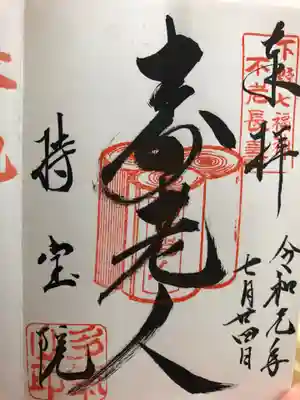 下野七福神
不老長寿
奉拝
令和元年
七月廿四日
寿老人
持宝院